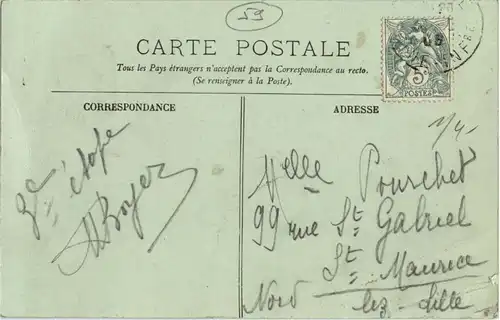 59
CARTE POSTALE
Tous les Pays étrangers n'acceptent pas la Correspondance au recto.
(Se renseigner à la Poste).
5c
POSTES
CORRESPONDANCE
ADRESSE
1/4-
2e étape
Melle Pourchet
99 rue St Gabriel
St Maurice
Nord lez-Lille